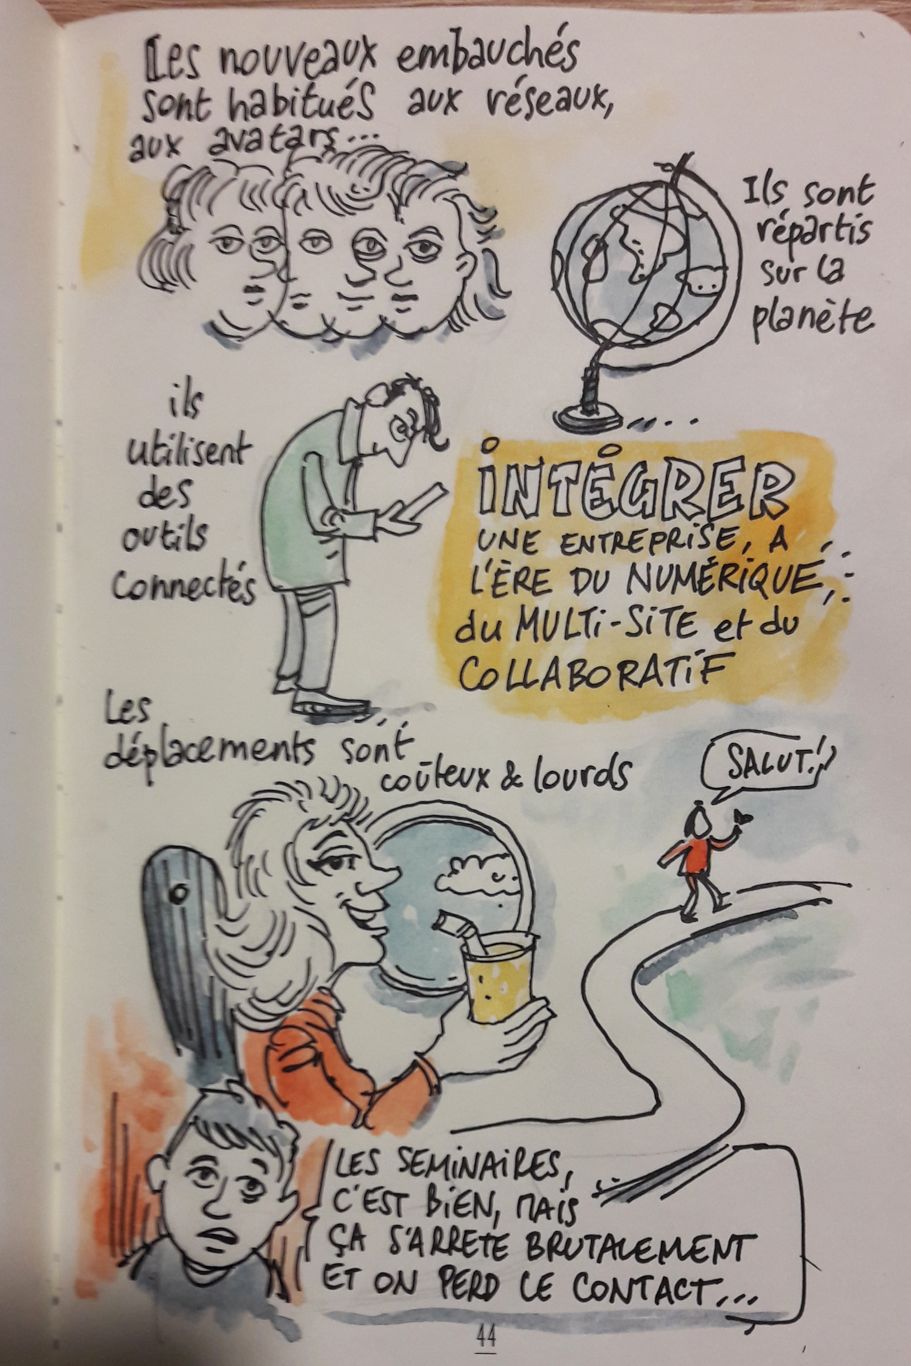 Les nouveaux embauchés
sont habitués aux réseaux,
aux avatars...
Ils sont
répartis
sur la
planète
ils
utilisent
des
outils
connectés
INTÉGRER
UNE ENTREPRISE, A
L'ÈRE DU NUMÉRIQUE,
du MULTI-SITE et du
COLLABORATIF
Les
déplacements sont
coûteux & lourds
SALUT!
LES SEMINAIRES,
C'EST BIEN, MAIS
ÇA S'ARRETE BRUTALEMENT
ET ON PERD LE CONTACT...
44